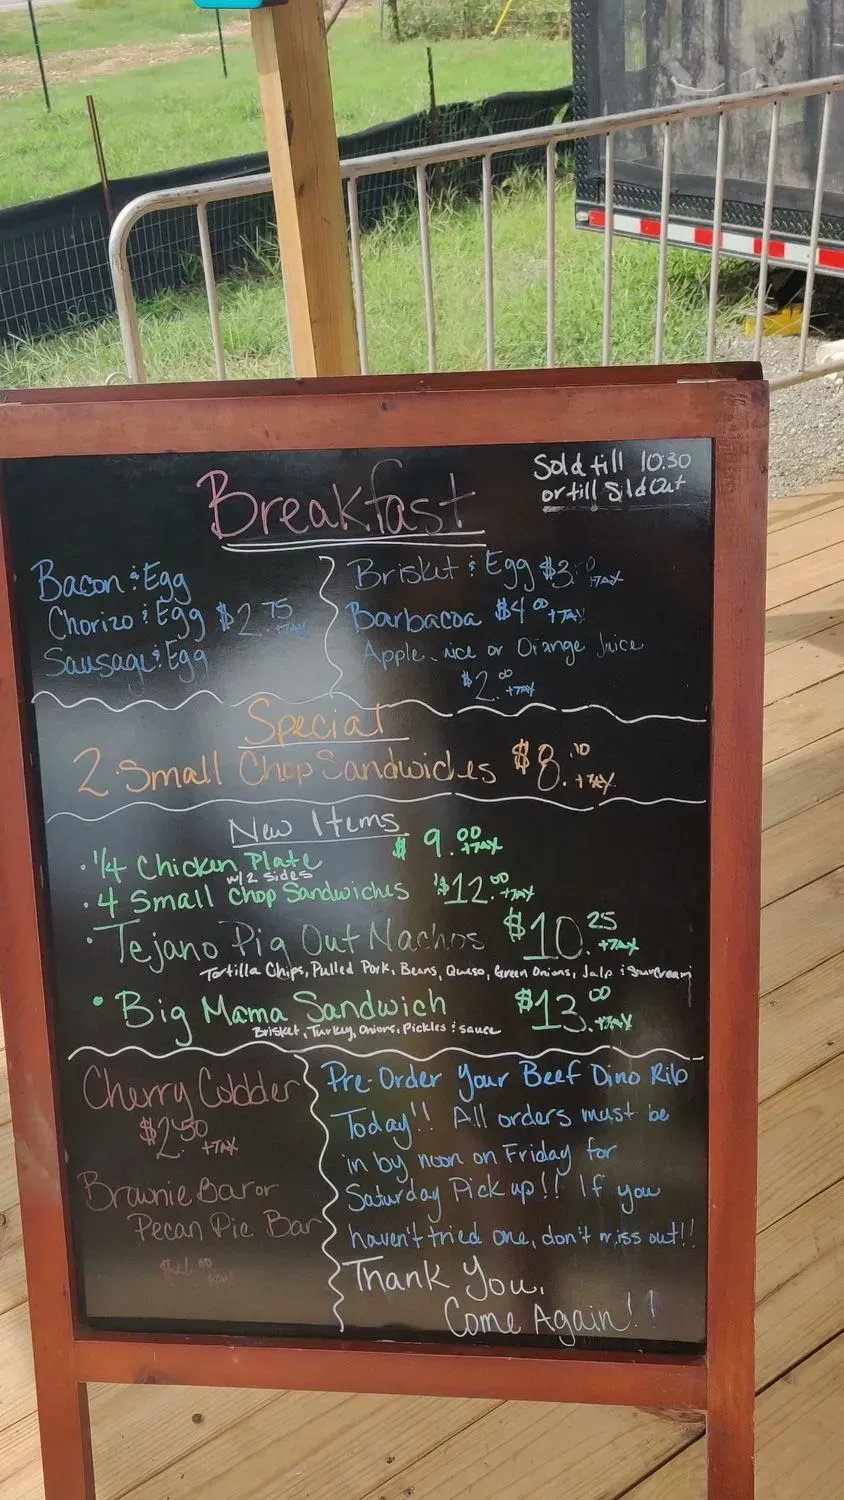 Breakfast
Sold till 10:30
or till Sild Out
Bacon & Egg
Chorizo & Egg $2.75 +TAX
Sausage & Egg
Brisket & Egg $3. +TAX
Barbacoa $4.00 +TAX
Apple Juice or Orange Juice
$2.00 +TAX
Special
2 Small Chop Sandwiches $8. +TAX
New Items
• 1/4 Chicken Plate $9.00 +TAX
w/2 sides
• 4 Small Chop Sandwiches $12.00 +TAX
• Tejano Pig Out Nachos $10.25 +TAX
Tortilla Chips, Pulled Pork, Beans, Queso, Green Onions, Jalp & Sour Cream
• Big Mama Sandwich $13.00 +TAX
Brisket, Turkey, Onions, Pickles & sauce
Cherry Cobbder
$2.50 +TAX
Brownie Bar or
Pecan Pie Bar
Pre-Order Your Beef Dino Rib
Today!! All orders must be
in by noon on Friday for
Saturday Pick up!! If you
haven't tried one, don't miss out!!
Thank You,
Come Again!!